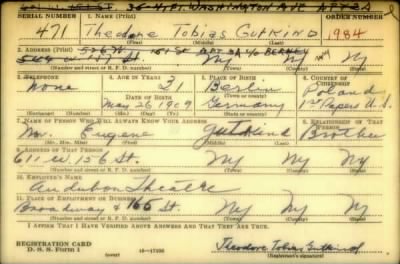 36-N.PI. WASHINGTON AVE APT 2A
SERIAL NUMBER 1. NAME (Print) ORDER NUMBER
471 Theodore Tobias Gutkind 1984
(First) (Middle) (Last)
2. ADDRESS (Print) 526 W 151 St APT 3A c/o
NY NY NY
(Number and street or R. F. D. number) (Town) (County) (State)
3. TELEPHONE 4. AGE IN YEARS 5. PLACE OF BIRTH 6. COUNTRY OF CITIZENSHIP
None 31 Berlin Poland
DATE OF BIRTH
May 26 1909 Germany 1st Papers U.S.
(Exchange) (Number) (Mo.) (Day) (Yr.) (State or county)
7. NAME OF PERSON WHO WILL ALWAYS KNOW YOUR ADDRESS 8. RELATIONSHIP OF THAT PERSON
Mr. Eugene Gutkind Brother
(Mr., Mrs., Miss) (First) (Middle) (Last)
9. ADDRESS OF THAT PERSON
611 W. 156 St. NY NY NY
(Number and street or R. F. D. number) (Town) (County) (State)
10. EMPLOYER'S NAME
Audubon Theatre
11. PLACE OF EMPLOYMENT OR BUSINESS
Broadway & 165 St. NY NY NY
(Number and street or R. F. D. number) (Town) (County) (State)
I AFFIRM THAT I HAVE VERIFIED ABOVE ANSWERS AND THAT THEY ARE TRUE.
REGISTRATION CARD
D. S. S. Form 1 (over) 16-17105 Theodore Tobias Gutkind
(Registrant's signature)